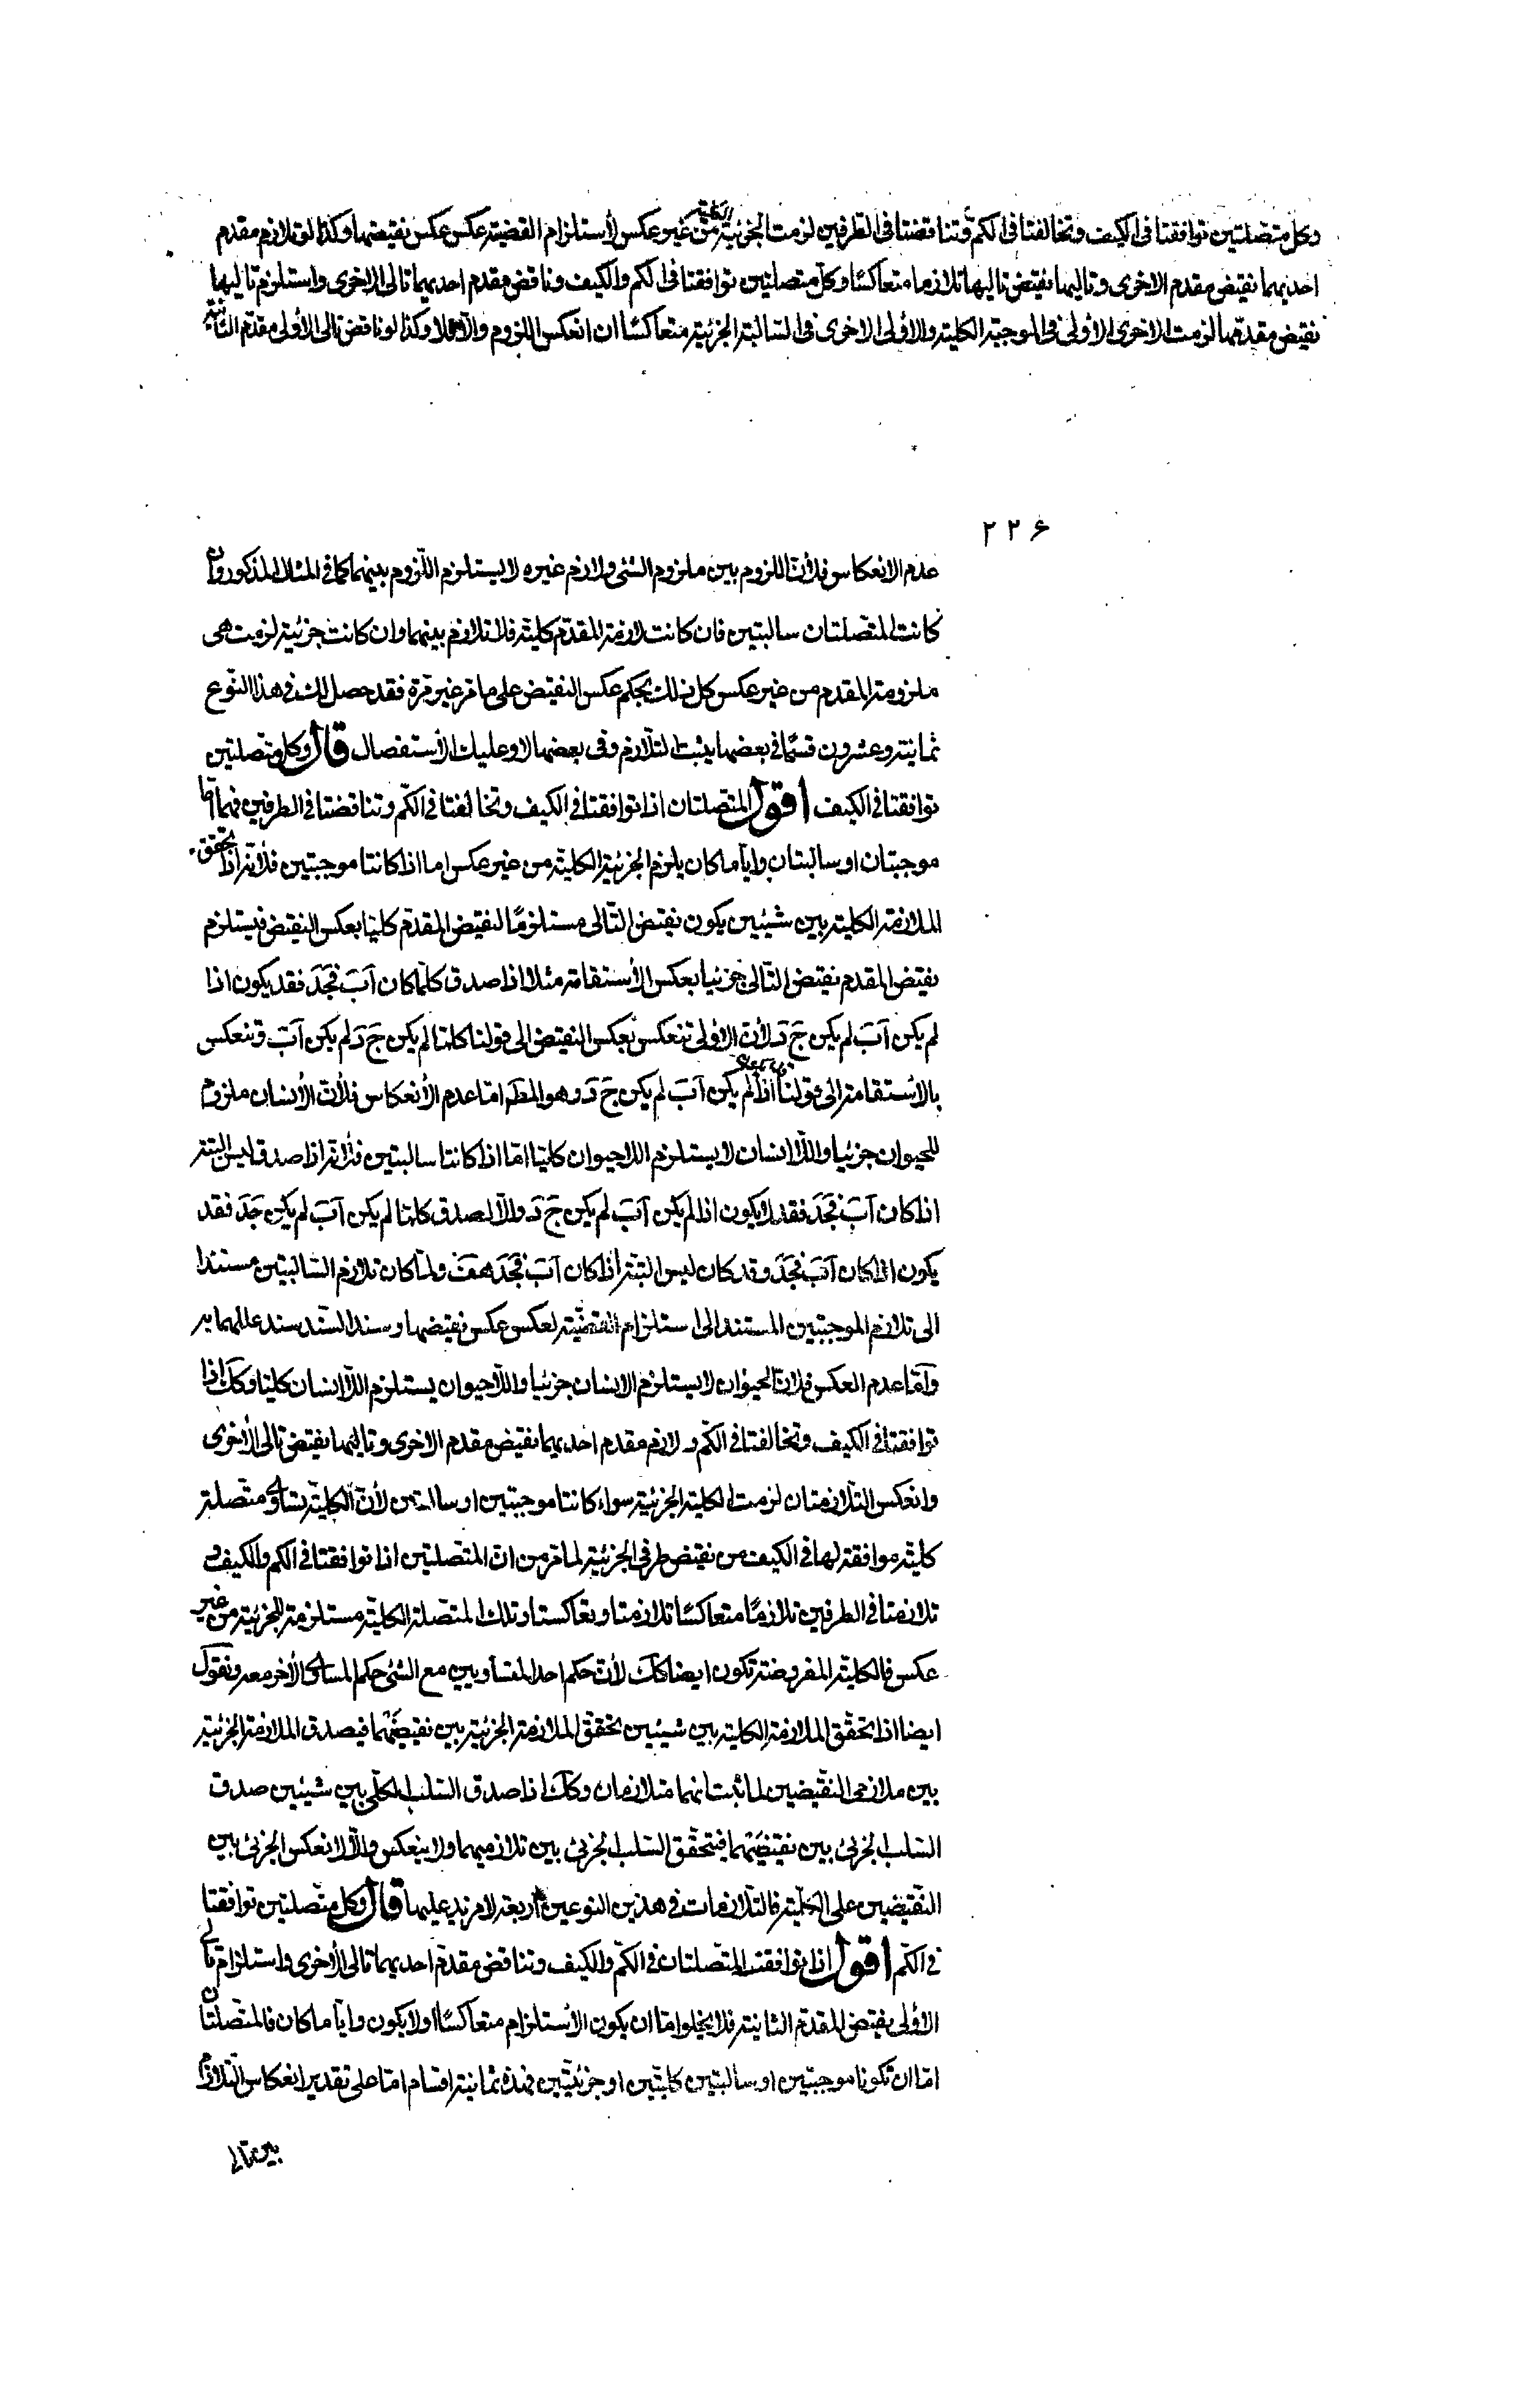 وكل متصلتين توافقتا فى الكيف وتخالفتا فى الكم وتناقضتا فى الطرفين لزمت الجزئية الكلية من غير عكس لأستلزام القضيته عكس عكس نقيضها وكذا لو تلازم مقدم
احديهما نقيض مقدم الاخرى وتاليها نقيض تاليها تلازما متعاكسًا وكل متصلتين توافقتا فى الكم والكيف وناقض مقدم احديهما تالى الاخرى واستلزم تاليها
نقيض مقدمها لزمت الاخرى الأولى فى الموجبة الكلية والاولى الاخرى فى السالبة الجزئية متعاكسًا ان انعكس اللزوم والا فلا وكذا لو ناقض تالى الأولى مقدم الثانية
۲۲۶
عدم الانعكاس فلأن اللزوم بين ملزوم الشئ ولازم غيره لا يستلزم اللزوم بينهما كما فى المثال المذكور وان
كانت المتصلتان سالبتين فان كانت لازمة المقدم كلية فلا تلازم بينهما وان كانت جزئية لزمت هى
ملزومة المقدم من غير عكس كل ذلك بحكم عكس النقيض على ما مر غير مرة فقد حصل لك فى هذا النوع
ثمانية وعشرون قسمًا فى بعضها يثبت التلازم وفى بعضها لا وعليك الأستفصال قال وكل متصلتين
توافقتا فى الكيف اقول المتصلتان اذا توافقتا فى الكيف وتخالفتا فى الكم وتناقضتا فى الطرفين فهما اما
موجبتان او سالبتان وايا ما كان يلزم الجزئية الكلية من غير عكس اما اذا كانتا موجبتين فلأنه اذا تحقق
الملازمة الكلية بين شيئين يكون نقيض التالى مستلزمًا لنقيض المقدم كليا بعكس النقيض فيستلزم
نقيض المقدم نقيض التالى جزئيا بعكس الأستقامة مثلا اذا صدق كلما كان آب فجد فقد يكون اذا
لم يكن آب لم يكن ج د لأن الاولى تنعكس بعكس النقيض الى قولنا كلما لم يكن ج د لم يكن آب وتنعكس
بالأستقامة الى قولنا قد يكون اذا لم يكن آب لم يكن ج د وهو المط اما عدم الأنعكاس فلأن الأنسان ملزوم
للحيوان جزئيا واللا انسان لا يستلزم اللاحيوان كليا اما اذا كانتا سالبتين فلأنه اذا صدق ليس البتة
اذا كان آب فجد فقد لا يكون اذا لم يكن آب لم يكن ج د والا لصدق كلما لم يكن آب لم يكن جد فقد
يكون اذا كان آب فجد وقد كان ليس البتة اذا كان آب فجد هف ولما كان تلازم السالبتين مستندا
الى تلازم الموجبتين المستند الى استلزام القضية لعكس عكس نقيضها وسند السند سند عللهما به
واما عدم العكس فلان الحيوان لا يستلزم الانسان جزئيا واللاحيوان يستلزم اللاانسان كليا وكك اذا
توافقتا فى الكيف وتخالفتا فى الكم ولازم مقدم احديهما نقيض مقدم الاخرى وتاليها نقيض تالى الأخرى
وانعكس التلازمان لزمت الكلية الجزئية سواء كانتا موجبتين او سالبتين لأن الكلية تساوى متصلة
كلية موافقة لها فى الكيف من نقيض طرفى الجزئية لما مر من ان المتصلتين اذا توافقتا فى الكم والكيف و
تلازمتا فى الطرفين تلازمًا متعاكسًا تلازمتا وتعاكستا وتلك المتصلة الكلية مستلزمة للجزئية من غير
عكس فالكلية المفروضة تكون ايضا كك لأن حكم احد المتساويين مع الشئ حكم المساوى الأخر معه ونقول
ايضا اذا تحقق الملازمة الكلية بين شيئين تحقق الملازمة الجزئية بين نقيضهما فيصدق الملازمة الجزئية
بين ملازمى النقيضين لما ثبت انهما متلازمان وكك اذا صدق السلب الكلى بين شيئين صدق
السلب الجزئى بين نقيضهما فيتحقق السلب الجزئى بين تلازميهما ولا ينعكس والا لانعكس الجزئى بين
النقيضين على الكلية فالتلازمات فى هذين النوعين اربعة لا مزيد عليها قال وكل متصلتين توافقتا
فى الكم اقول اذا توافقت المتصلتان فى الكم والكيف وتناقض مقدم احديهما تالى الأخرى واستلزام تالى
الأولى نقيض المقدم الثانية فلا يخلو اما ان يكون الأستلزام متعاكسًا اولا يكون وايا ما كان فالمتصلتان
اما ان تكونا موجبتين او سالبتين كليتين او جزئيتين فهذه ثمانية اقسام اما على تقدير انعكاس التلازم
بين تالى